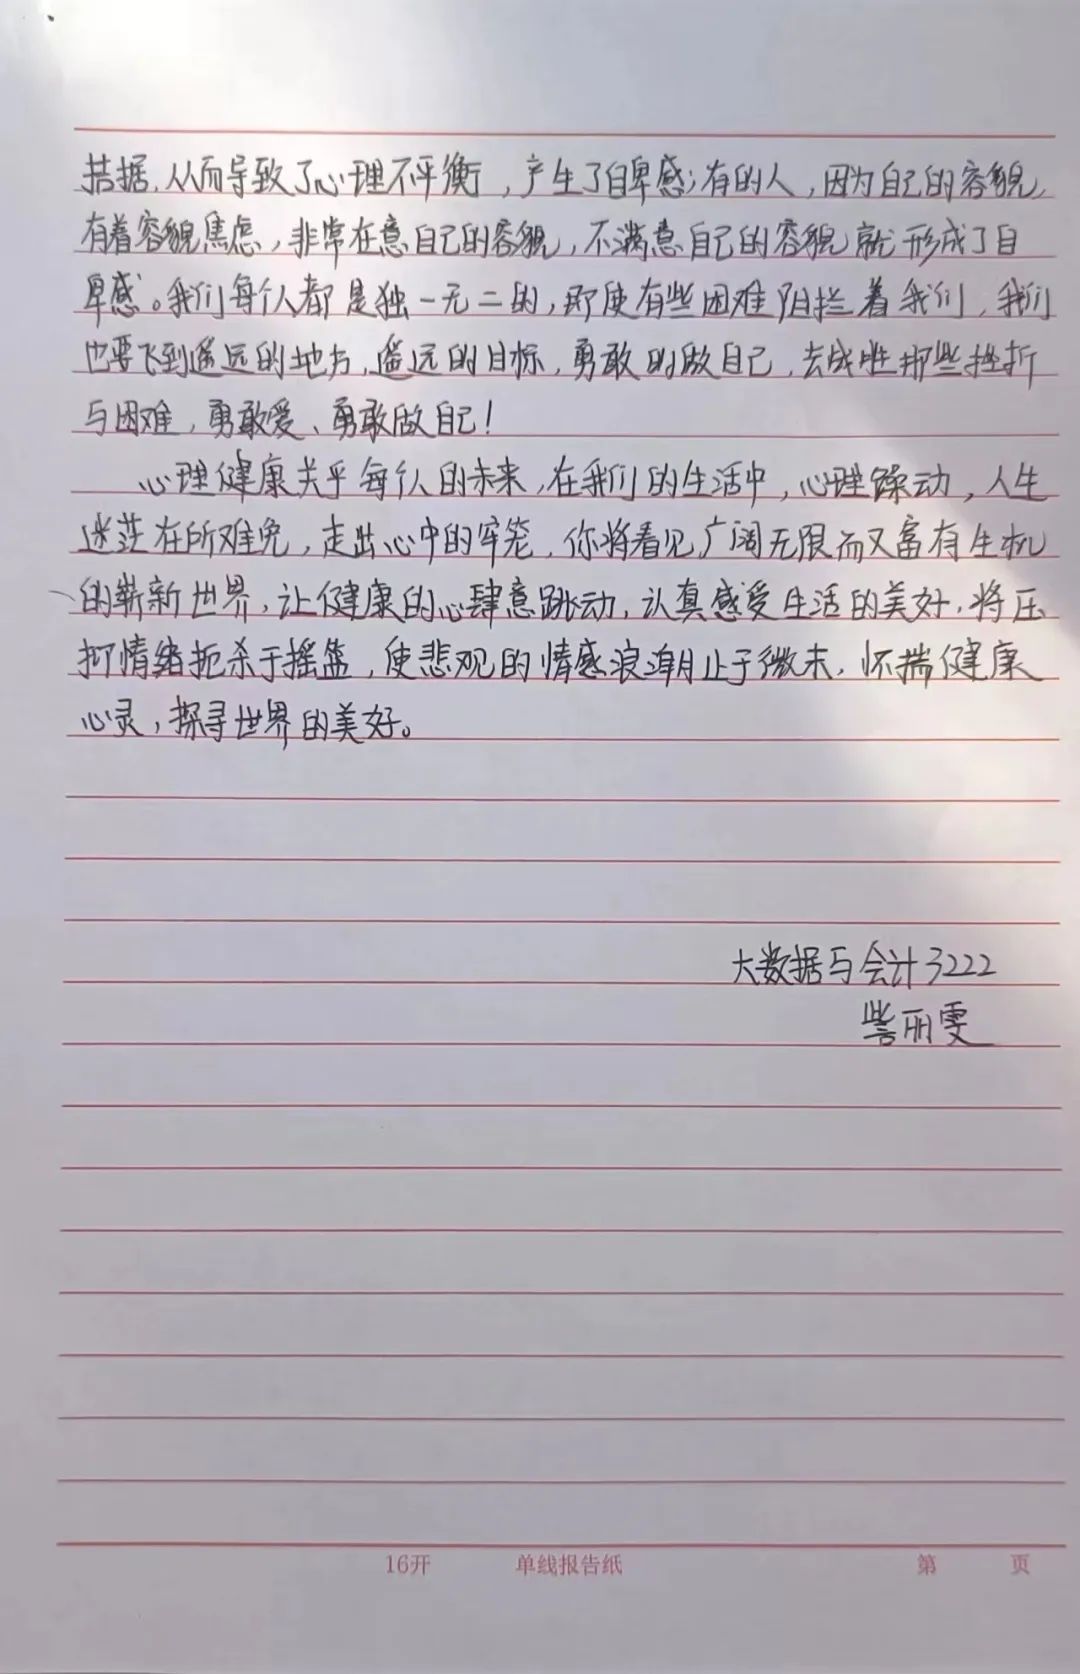 拮据，从而导致了心理不平衡，产生了自卑感；有的人，因为自己的容貌，
有着容貌焦虑，非常在意自己的容貌，不满意自己的容貌就形成了自
卑感。我们每个人都是独一无二的，即使有些困难阻拦着我们，我们
也要飞到遥远的地方，遥远的目标，勇敢的做自己，去战胜那些挫折
与困难，勇敢爱、勇敢做自己！
心理健康关乎每个人的未来，在我们的生活中，心理躁动，人生
迷茫在所难免，走出心中的牢笼，你将看见广阔无限而又富有生机
的崭新世界，让健康的心肆意跳动，认真感受生活的美好，将压
抑情绪扼杀于摇篮，使悲观的情感浪潮止于微末，怀揣健康
心灵，探寻世界的美好。
大数据与会计3222
丽雯
16开 单线报告纸 第 页